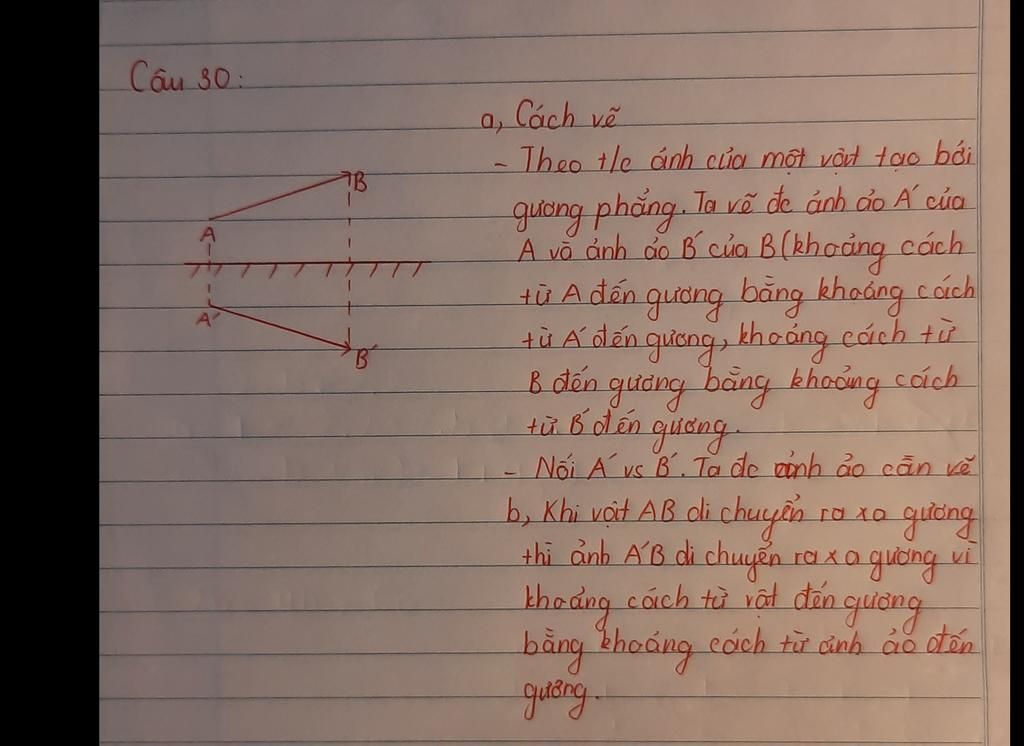 Câu 30:
a, Cách vẽ
- Theo t/c ảnh của một vật tạo bởi
gương phẳng. Ta vẽ đc ảnh ảo A' của
A và ảnh ảo B' của B (khoảng cách
từ A đến gương bằng khoảng cách
từ A' đến gương, khoảng cách từ
B đến gương bằng khoảng cách
từ B' đến gương.
- Nối A' vs B'. Ta đc ảnh ảo cần vẽ
b, Khi vật AB di chuyển ra xa gương
thì ảnh A'B di chuyển ra xa gương vì
khoảng cách từ vật đến gương
bằng khoảng cách từ ảnh ảo đến
gương.
B
A
A'
B'